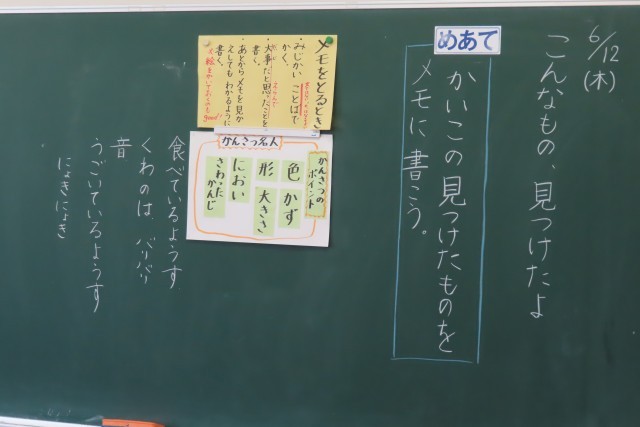 6/12(木)
こんなもの、見つけたよ
めあて
かいこの見つけたものを
メモに書こう。
メモをとるとき
・みじかいことばで
かく。
・大事だと思ったことを
書く。
・あとからメモを見か
えしてもわかるように
書く。
かんさつ名人
かんさつの
ポイント
色 かず
形 大きさ
におい
さわった
かんじ
食べているようす
くわのは、バリバリ
音
うごいているようす
にょきにょき